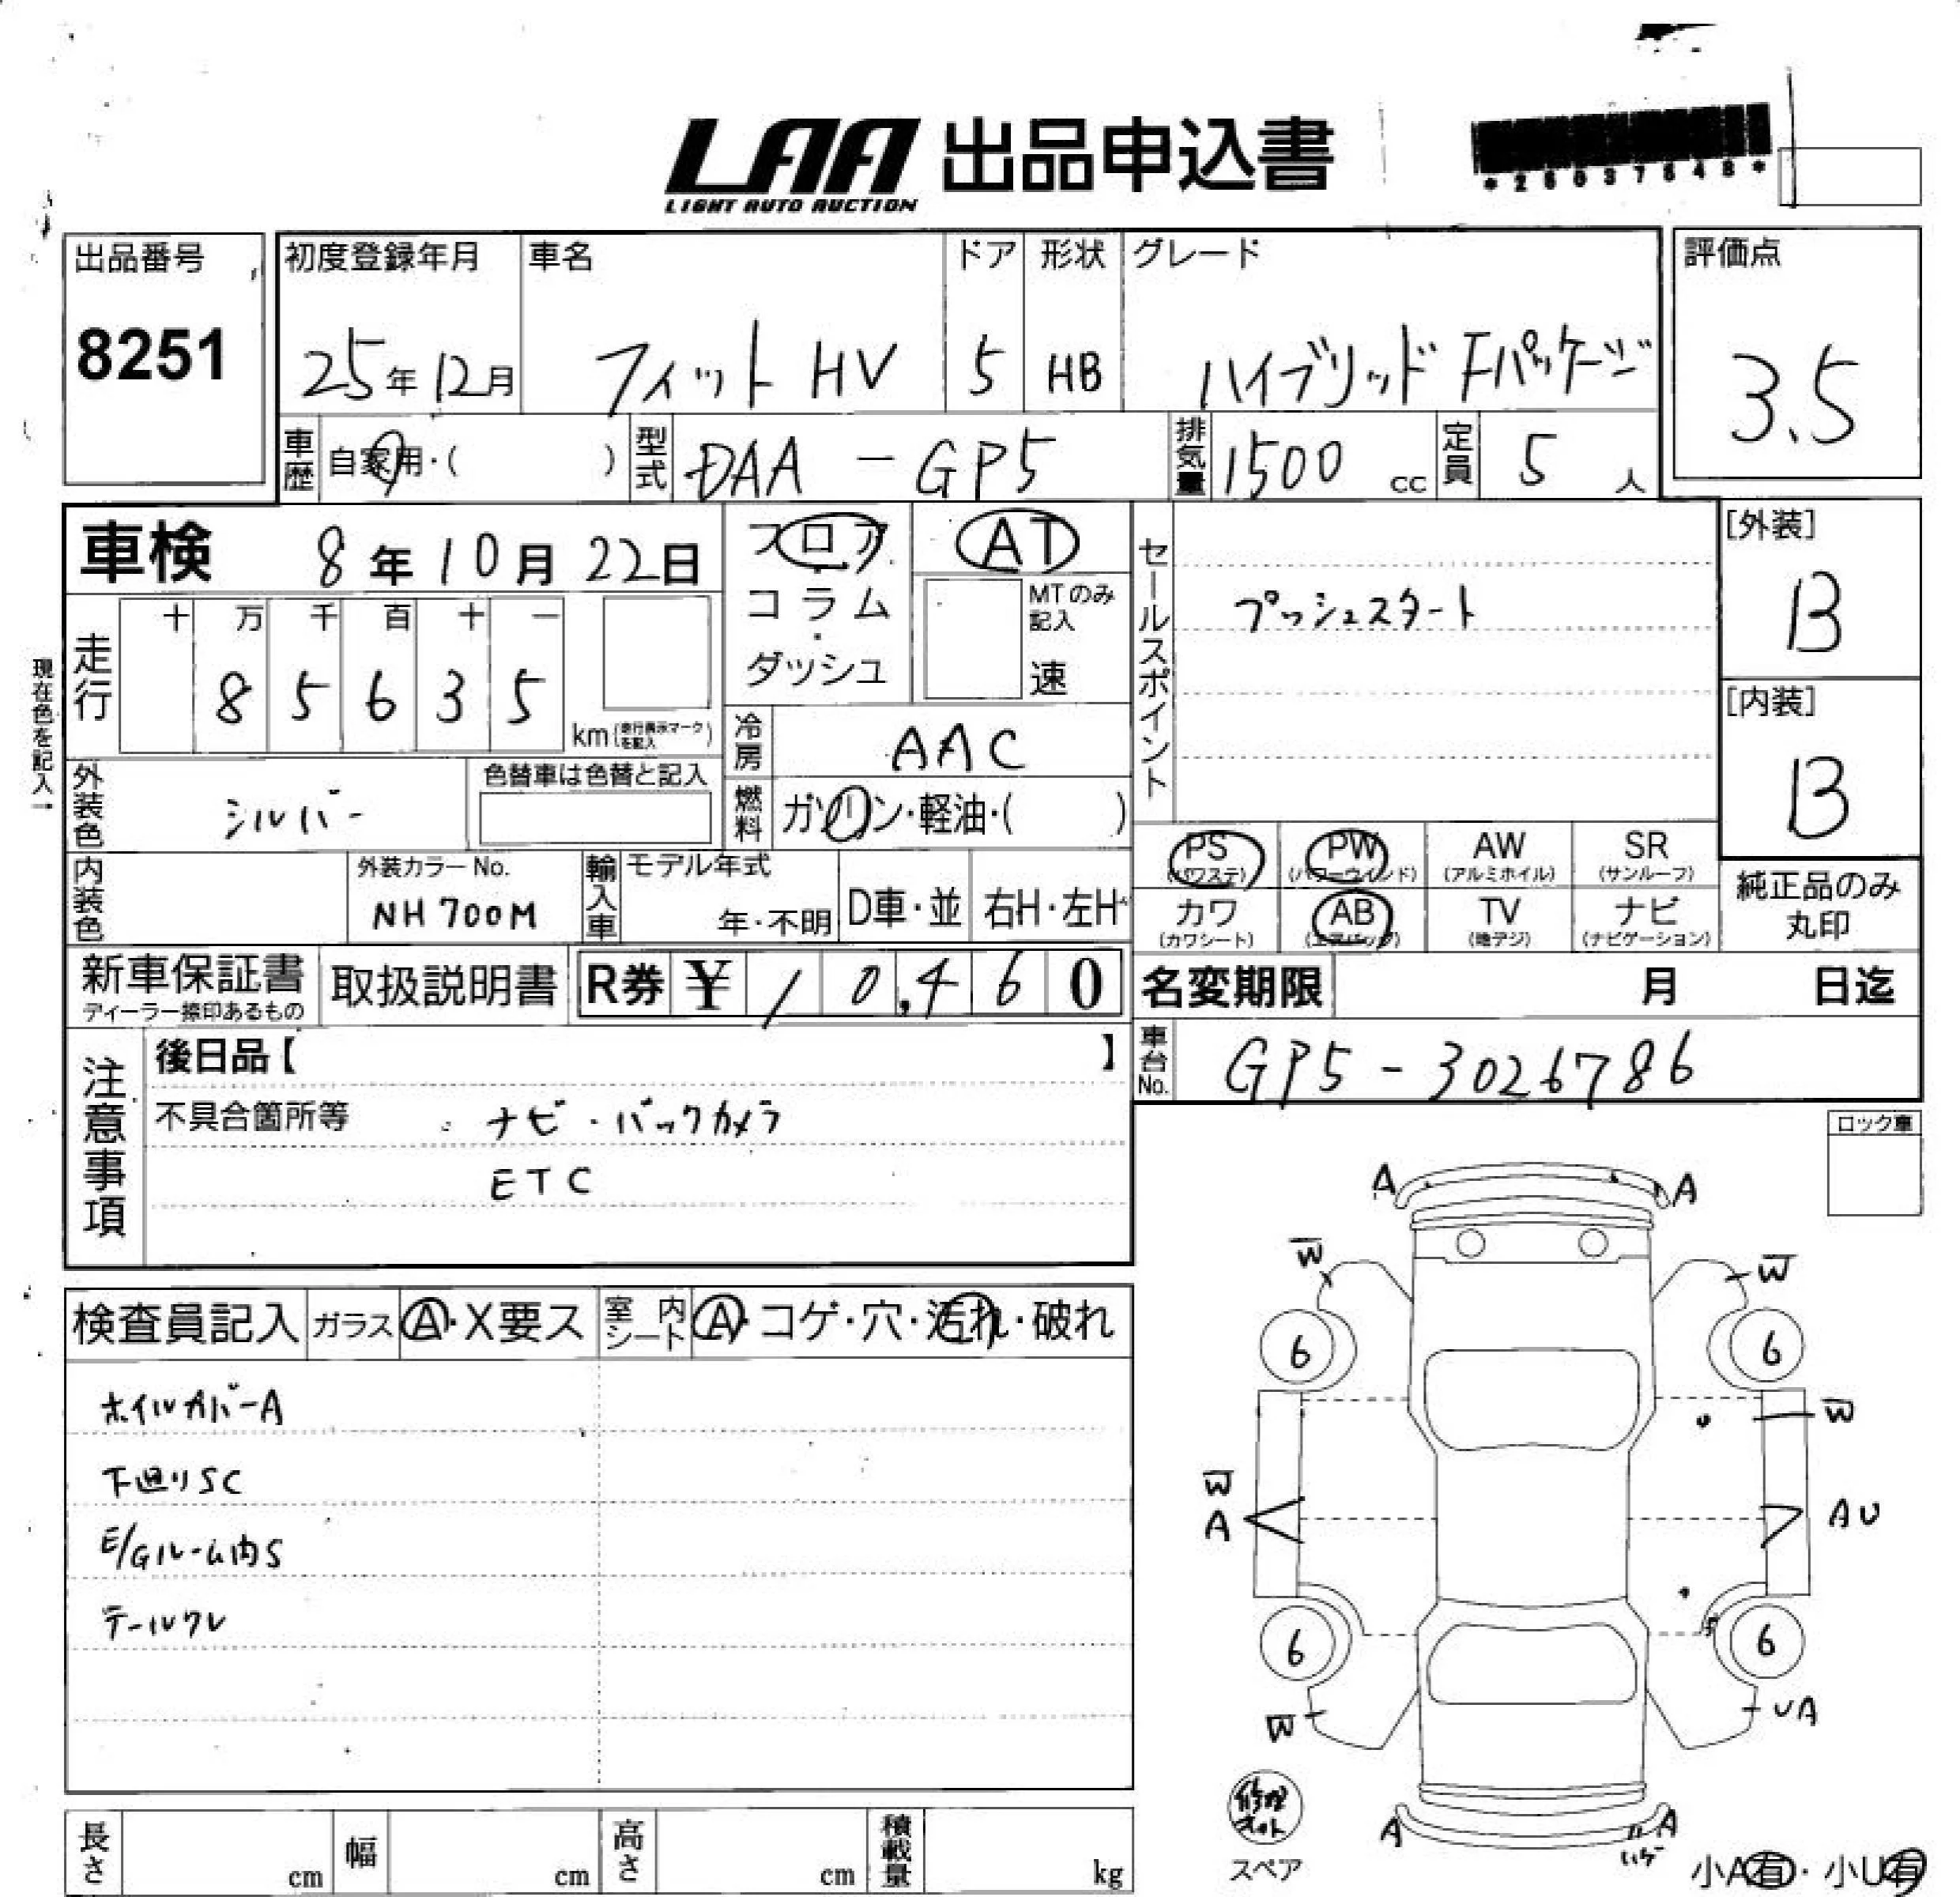 LAA 出品申込書
LIGHT AUTO AUCTION
*26037648*
出品番号
8251
初度登録年月
25年12月
車名
フィット HV
ドア
5
形状
HB
グレード
ハイブリッド Fパッケージ
評価点
3.5
車歴 自家用・( )
型式 DAA-GP5
排気量 1500 cc
定員 5 人
車検 8年10月22日
フロア・コラム・ダッシュ
AT
MTのみ記入
速
セールスポイント
プッシュスタート
[外装]
B
[内装]
B
現在色を記入→
走行
十 万 千 百 十 一
8 5 6 3 5
km(走行表示マークを記入)
冷房 AAC
外装色 シルバー
色替車は色替と記入
燃料 ガソリン・軽油・( )
内装色
外装カラーNo.
NH700M
輸入車
モデル年式
年・不明
D車・並
右H・左H
PS (パワステ)
PW (パワーウインド)
AW (アルミホイル)
SR (サンルーフ)
カワ (カワシート)
AB (エアバッグ)
TV (地デジ)
ナビ (ナビゲーション)
純正品のみ丸印
新車保証書
ディーラー捺印あるもの
取扱説明書
R券 ¥ 10,460
名変期限 月 日迄
注意事項
後日品【 】
不具合箇所等 ナビ・バックカメラ
ETC
車台No. GP5-3026786
ロック車
検査員記入
ガラス A・X要ス
室内シート A・コゲ・穴・汚れ・破れ
ホイルカバーA
下廻りSC
E/Gルーム内S
テールワレ
A A
W W
6 6
W
W
A AU
6 6
W UA
A A
ハゲ
修理キット
スペア
小A有・小U有
長さ cm
幅 cm
高さ cm
積載量 kg